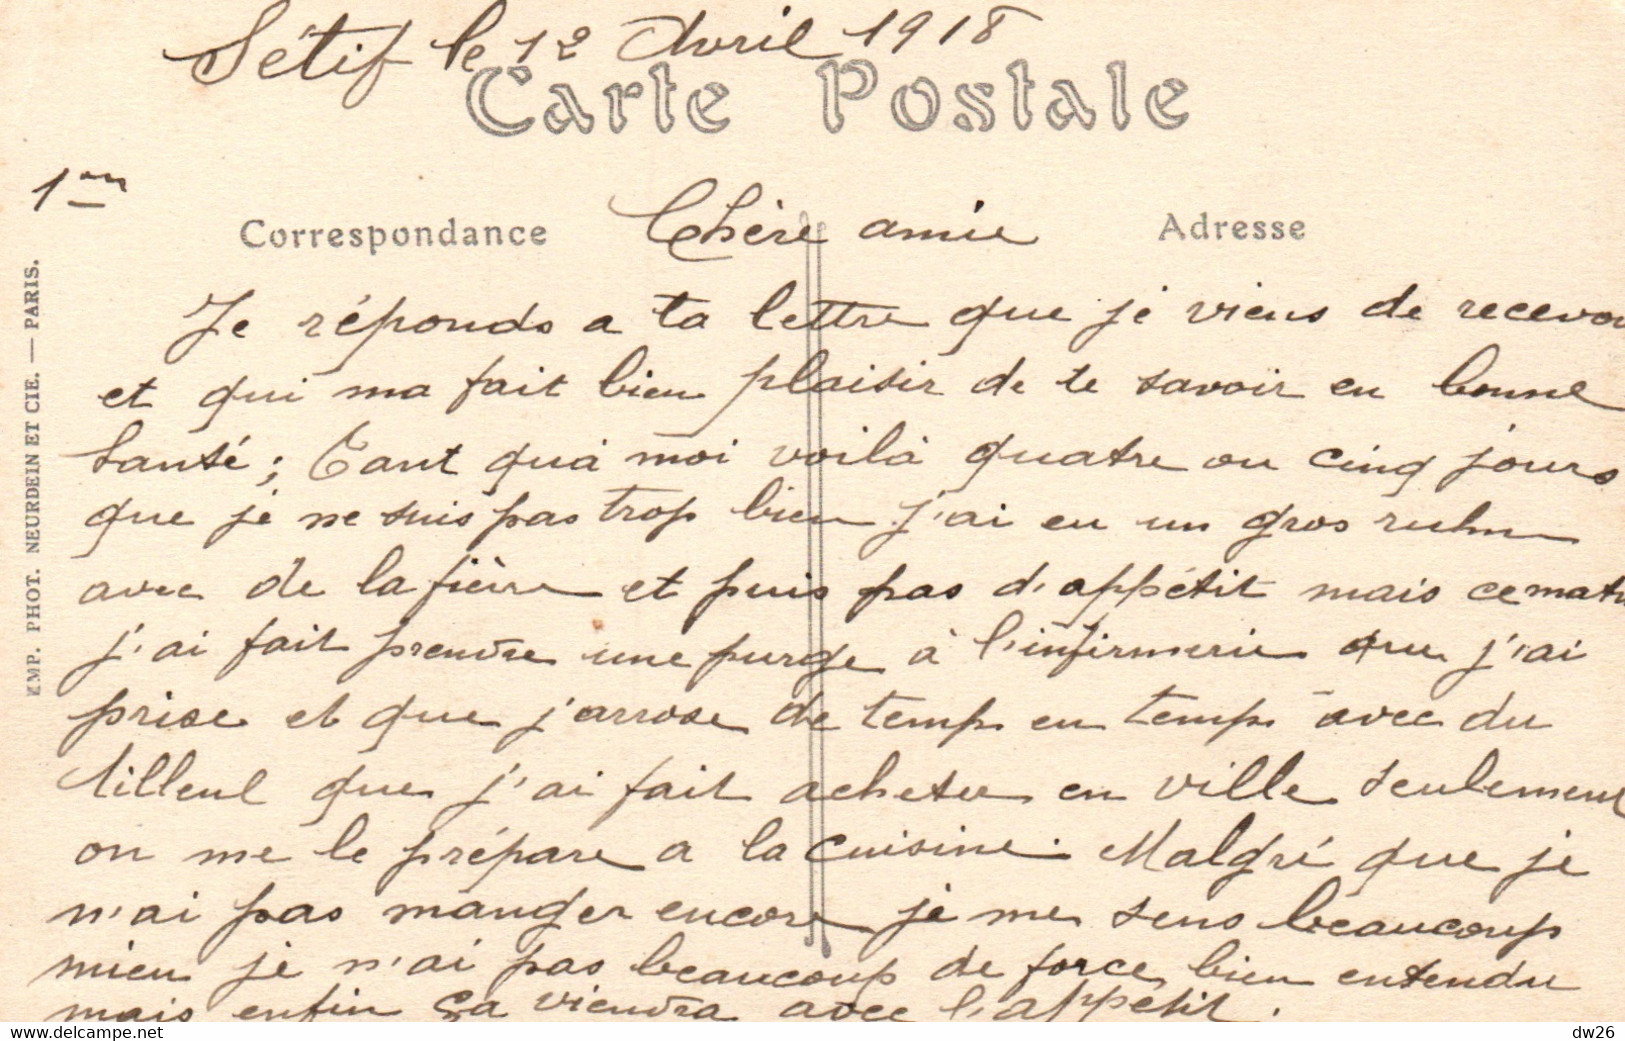 Sétif le 12 Avril 1918
Carte Postale
1er
Correspondance
Chère amie
Adresse
Je réponds a ta lettre que je viens de recevoi
et qui ma fait bien plaisir de te savoir en bonne
santé; Tant quà moi voilà quatre ou cinq jours
que je ne suis pas trop bien j'ai eu un gros ruhme
avec de la fièvre et puis pas d'appétit mais ce matin
j'ai fait prendre une purge à l'infirmerie que j'ai
prise et que j'arrose de temp en temp avec du
tilleul que j'ai fait acheter en ville seulement
on me le prépare a la cuisine. Malgré que je
n'ai pas manger encore je me sens beaucoup
mieu je n'ai pas beaucoup de force bien entendu
mais enfin ça viendra avec l'appétit.
EMP. PHOT. NEURDEIN ET CIE. — PARIS.
www.delcampe.net
dw26